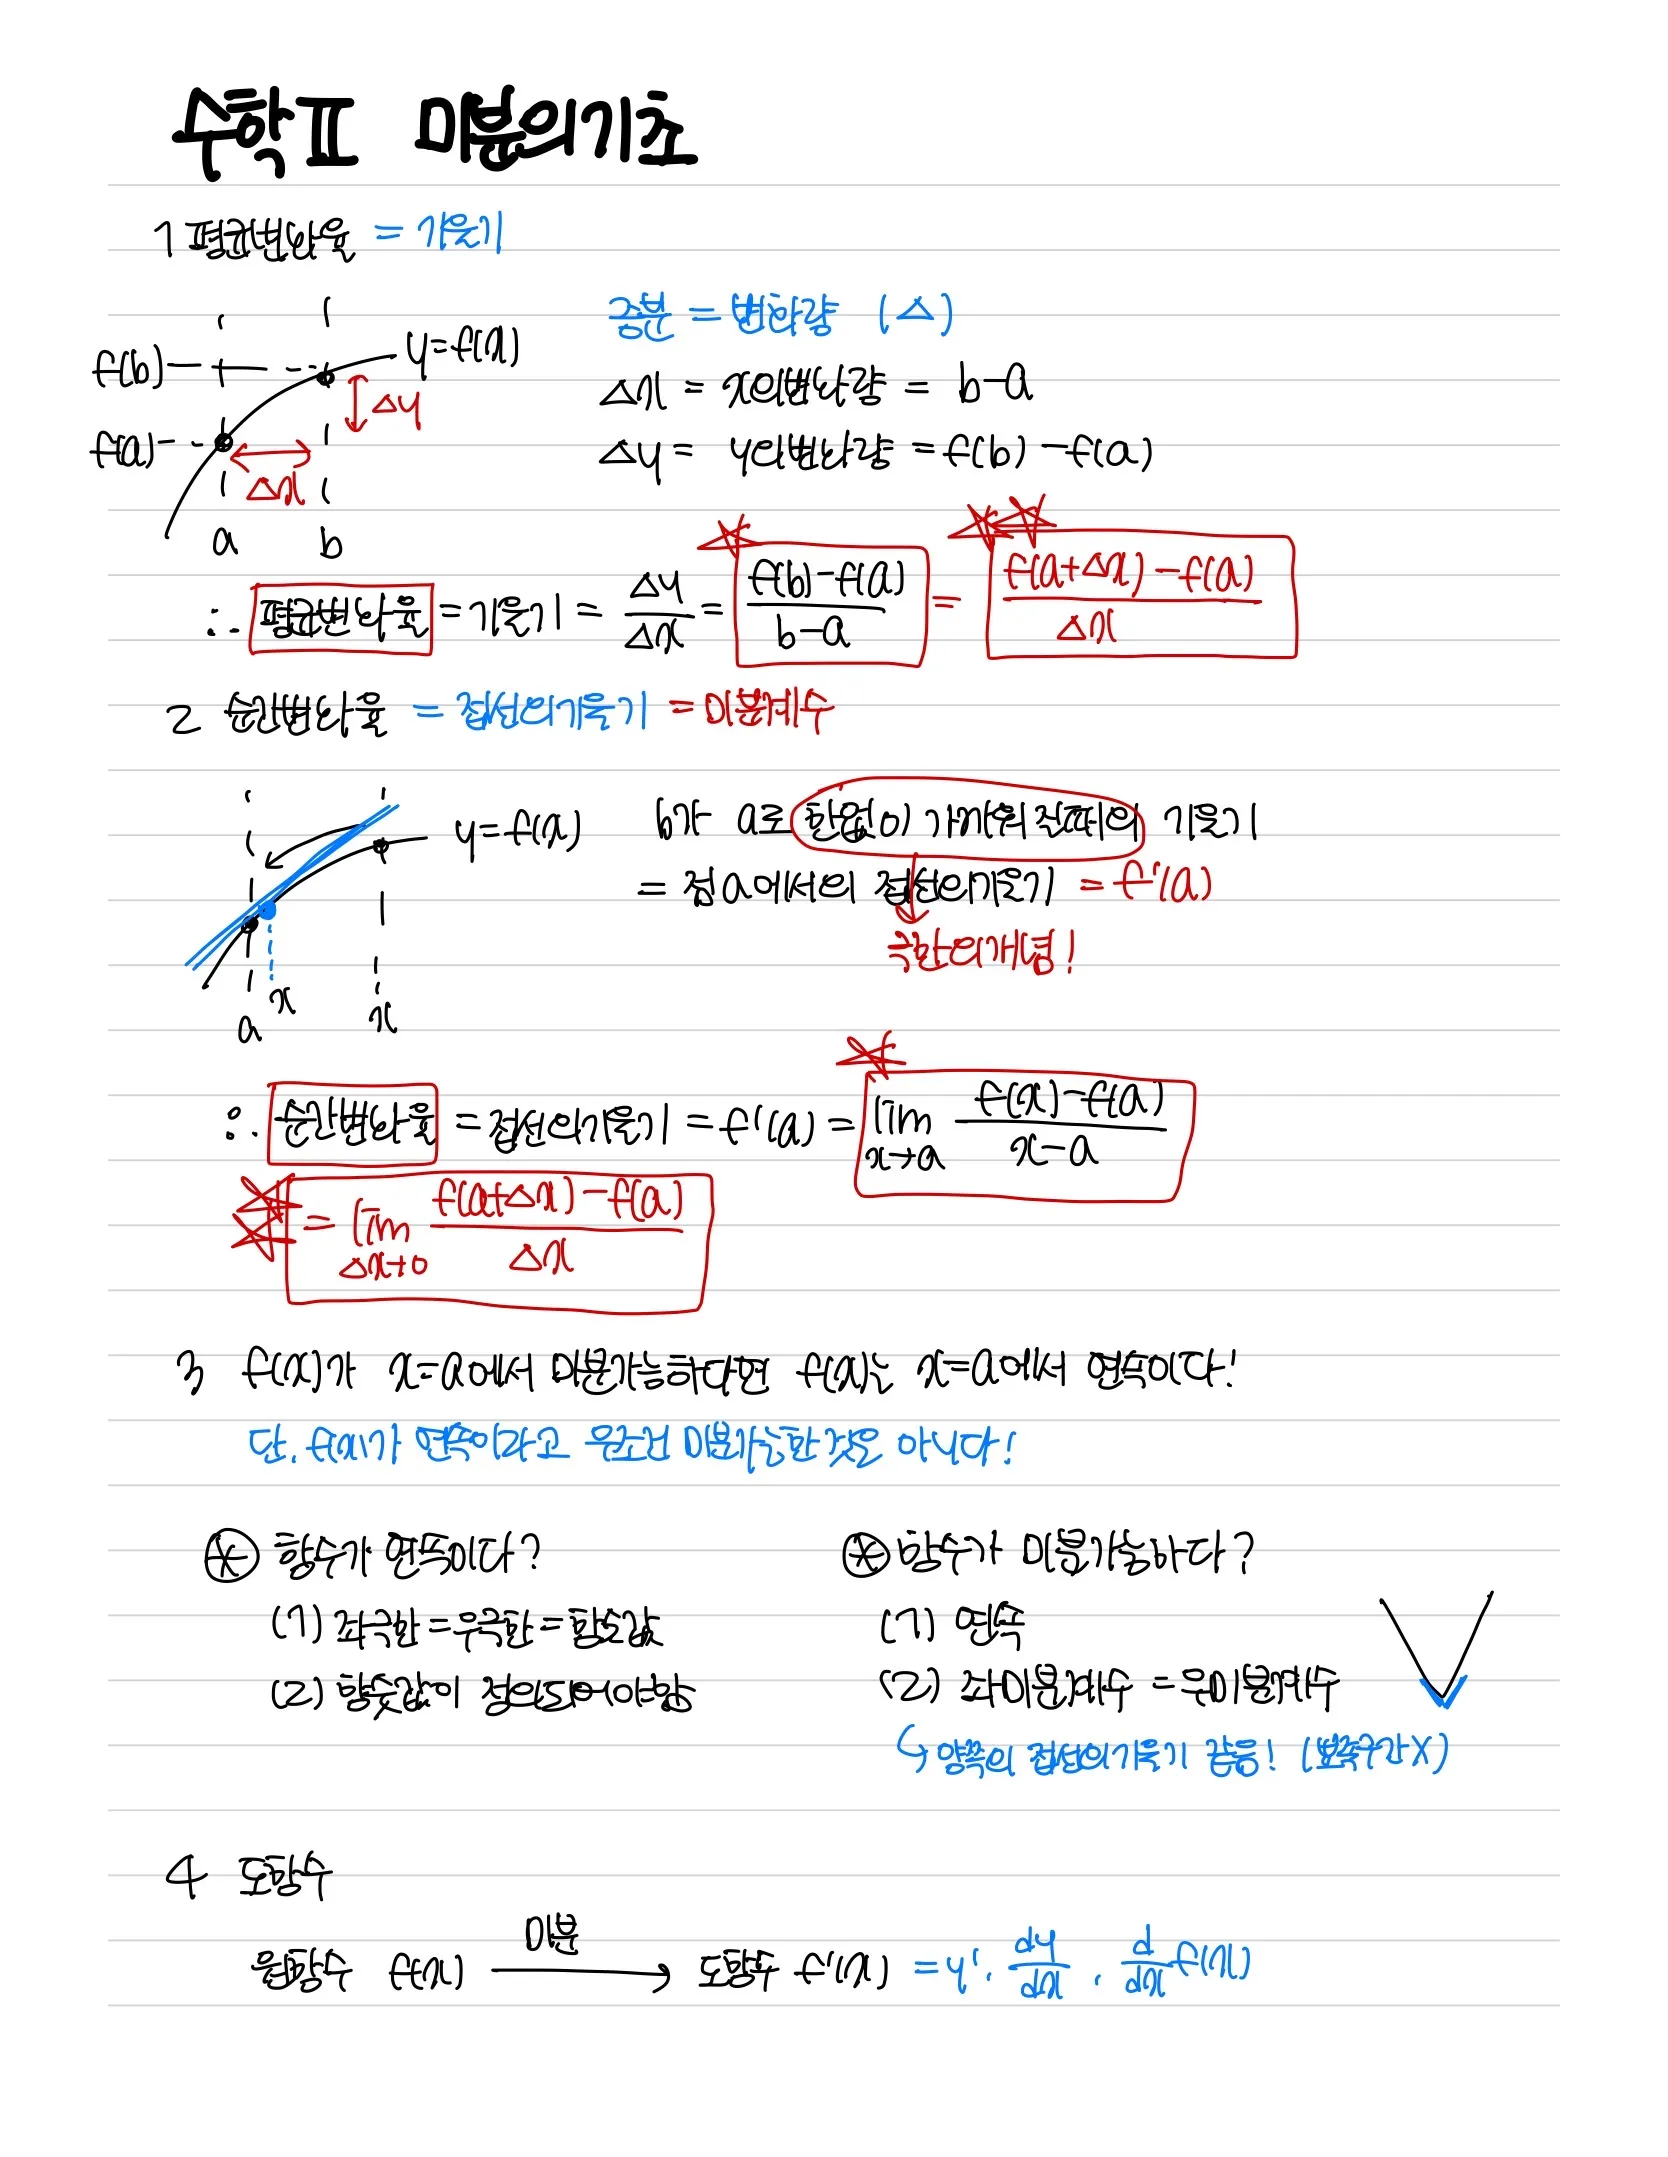 수학 II 미분의 기초
1 평균변화율 = 기울기
증분 = 변화량 (△)
f(b)
y=f(x)
△x = x의 변화량 = b-a
△y
f(a)
△y = y의 변화량 = f(b)-f(a)
△x
a b
∴ 평균변화율 = 기울기 = △y/△x = (f(b)-f(a))/(b-a) = (f(a+△x)-f(a))/△x
2 순간변화율 = 접선의 기울기 = 미분계수
y=f(x)
b가 a로 한없이 가까워 질때의 기울기
= 점 a에서의 접선의 기울기 = f'(a)
극한의 개념!
a x x
∴ 순간변화율 = 접선의 기울기 = f'(a) = lim x→a (f(x)-f(a))/(x-a)
= lim △x→0 (f(a+△x)-f(a))/△x
3 f(x)가 x=a에서 미분가능하다면 f(x)는 x=a에서 연속이다!
단, f(x)가 연속이라고 무조건 미분가능한 것은 아니다!
※ 함수가 연속이다?
(1) 좌극한 = 우극한 = 함수값
(2) 함숫값이 정의되어야함
※ 함수가 미분가능하다?
(1) 연속
(2) 좌미분계수 = 우미분계수
↳ 양쪽의 접선의 기울기 같음! (뾰족구간X)
4 도함수
미분
원함수 f(x) → 도함수 f'(x) = y', dy/dx, d/dx f(x)